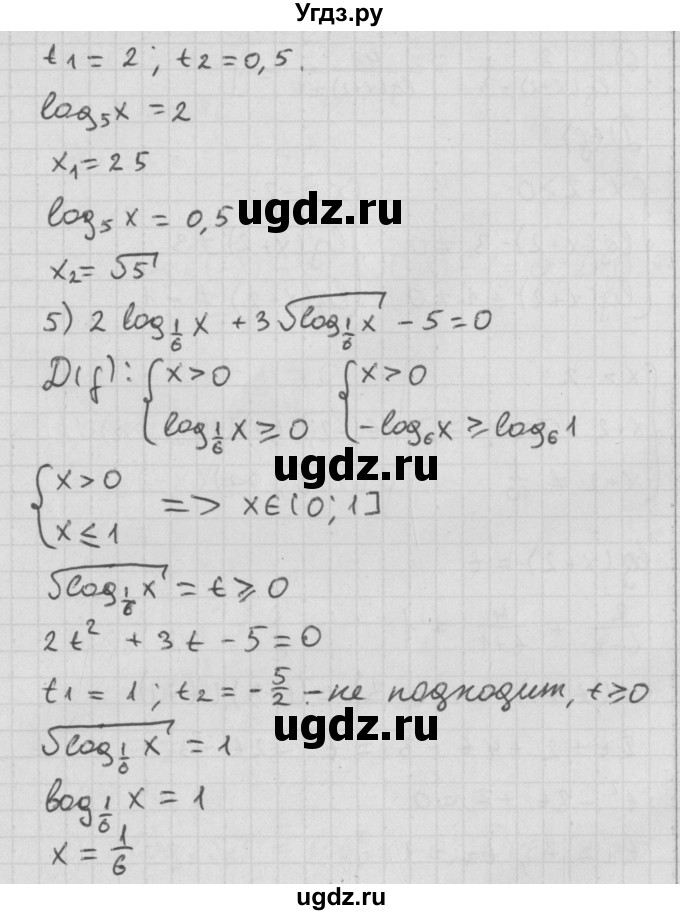 Угдз.ру
t₁ = 2 ; t₂ = 0,5.
log₅x = 2
x₁ = 25
log₅x = 0,5
ugdz.ru
x₂ = √5
5) 2 log_{1/6} x + 3√(log_{1/6} x) - 5 = 0
D(f): { x > 0 { x > 0
log_{1/6} x ≥ 0 -log₆x ≥ log₆1
ugdz.ru
{ x > 0
x ≤ 1 => x∈(0;1]
√(log_{1/6} x) = t ≥ 0
2t² + 3t - 5 = 0
t₁ = 1 ; t₂ = -5/2 - не подходит, t ≥ 0
√(log_{1/6} x) = 1
ugdz.ru
log_{1/6} x = 1
x = 1/6
ugdz.ru